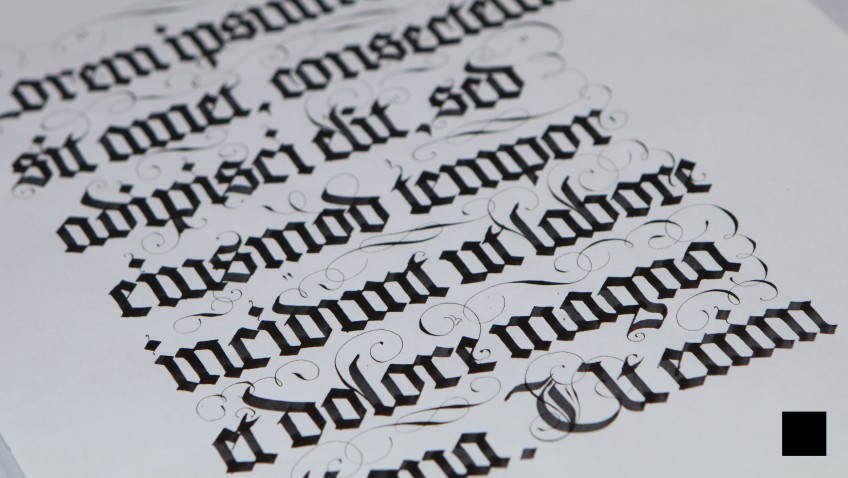 Lorem ipsum
sit amet, consectetur
adipisci elit, sed
eiusmod tempor
incidunt ut labore
et dolore magna
Ut enim